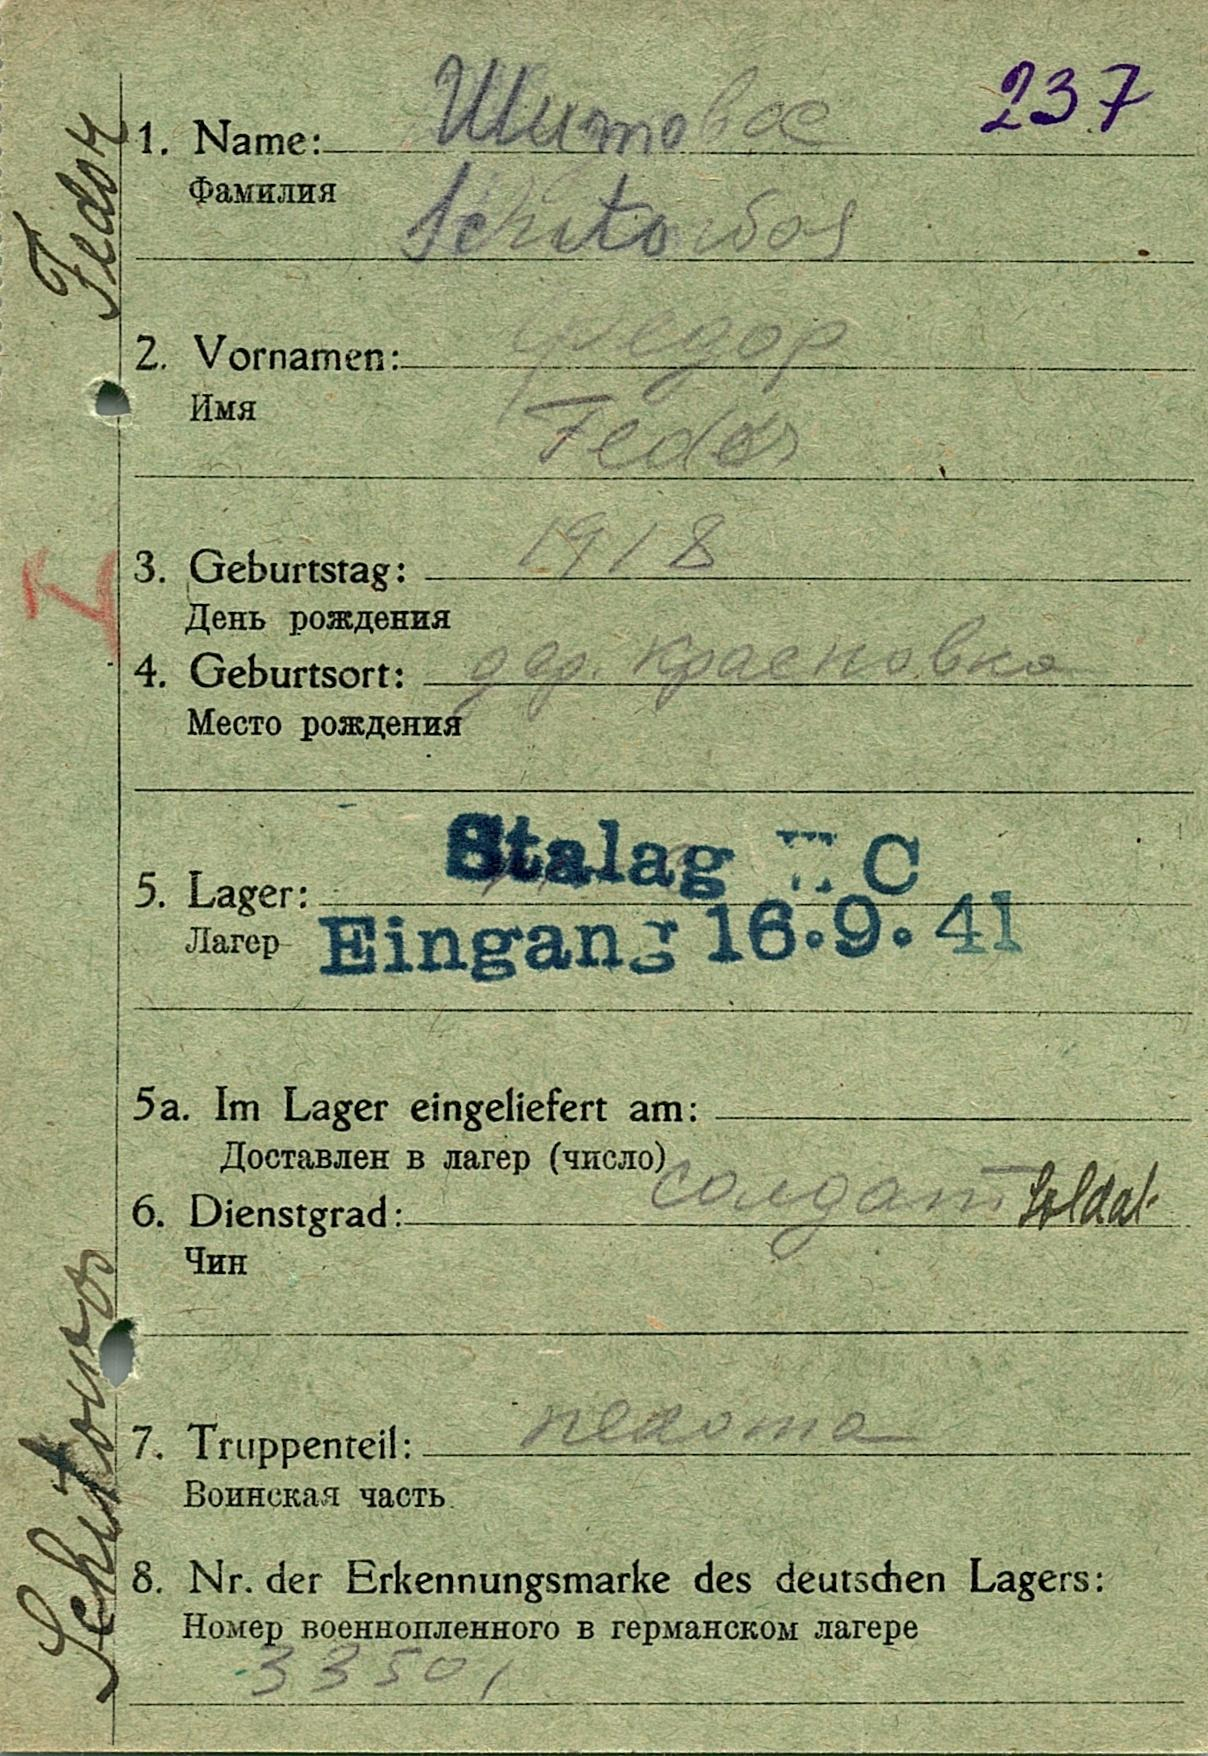 237
1. Name: Шитовас
Фамилия
Schitowos
2. Vornamen: Федор
Имя
Fedor
3. Geburtstag: 1918
День рождения
4. Geburtsort: дер. Красновка
Место рождения
Stalag C
5. Lager:
Лагер
Eingang 16.9.41
5a. Im Lager eingeliefert am:
Доставлен в лагер (число)
6. Dienstgrad: солдат Soldat
Чин
7. Truppenteil: пехота
Воинская часть
8. Nr. der Erkennungsmarke des deutschen Lagers:
Номер военнопленного в германском лагере
33501
Fedor